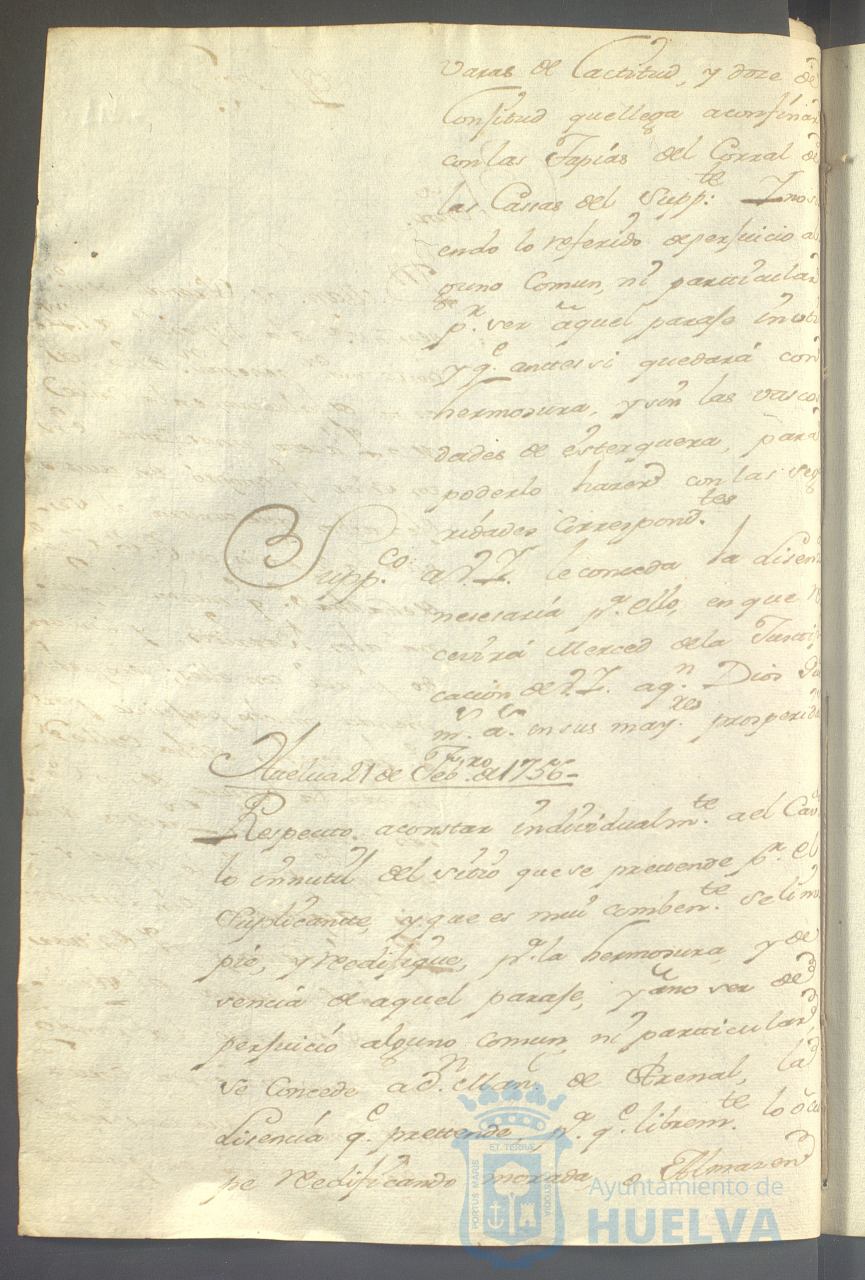 varas de Lactitud, y doze de
Lonjitud que llega aconfinar
con las Tapias del Corral de
las Cassas del Supp.te Y no si
endo lo referido de perjuicio al
guno Comun, ni particular
p.r ser aquel paraje inutil
y q.e anttes si quedará con
hermosura, y sin las vasco
dades de esterquera, para
poderlo hazer con las segu
ridades correspond.tes
Supp.co a V.S. le conceda la lisen
nesesaria p.a ello, en que re
cevirá Merced de la Justifi
cacion de V.S. aq.n Dios Gu
m.s a.s en sus may.res prosperida
Huelva 21 de Feb.ro de 1756=
Respecto aconstar individualm.te a el Cav
lo innutil del sitio que se prettende p.r el
Suplicantte, y que es mui comben.te se lim
pie, y redifique, p.a la hermosura y de
sencia de aquel paraje, y no ser de
perjuicio alguno comun, ni particular,
se Concede a d.n Man.l de Arenal, la
lisencia q.e prettende, p.a q.e librem.te lo ocu
pe redificando morada, o Almazen
Ayuntamiento de
HUELVA
PORTUS MARIS
ET TERRAE
CUSTODIA